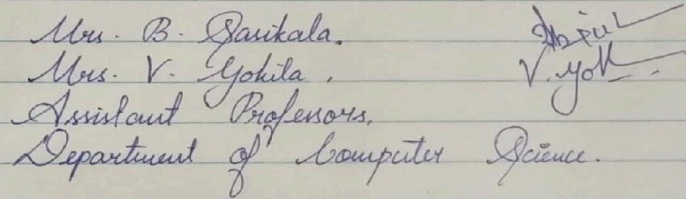 Mrs. B. Sasikala.
Mrs. V. Yokila.
V. Yok
Assistant Professors,
Department of Computer Science.